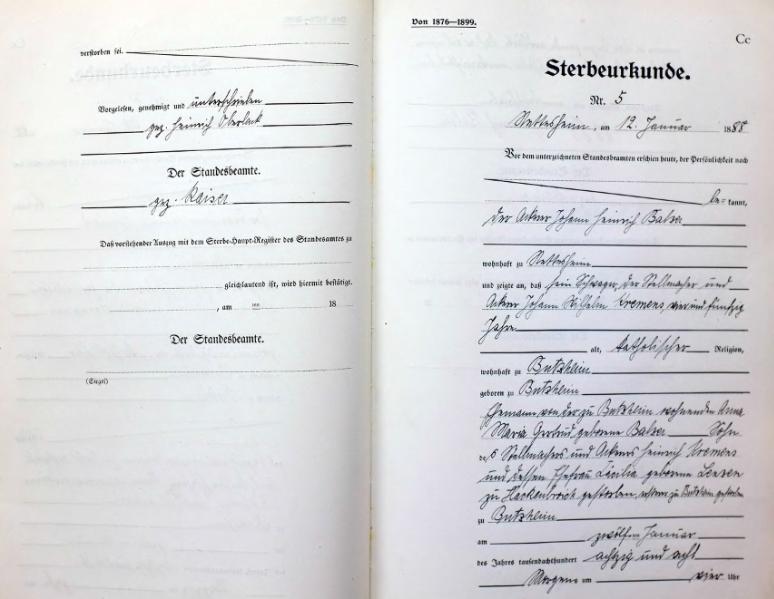 verstorben sei.
Vorgelesen, genehmigt und unterschrieben
gez. Heinrich Oberlack
Der Standesbeamte.
gez. Kaiser
Daß vorstehender Auszug mit dem Sterbe-Haupt-Register des Standesamtes zu
gleichlautend ist, wird hiermit bestätigt.
, am ten 18
Der Standesbeamte.
(Siegel)
Von 1876—1899.
Cc
Sterbeurkunde.
Nr. 5
Nettesheim, am 12. Januar 1888
Vor dem unterzeichneten Standesbeamten erschien heute, der Persönlichkeit nach
be= kannt,
der Ackerer Johann Heinrich Balzer
wohnhaft zu Nettesheim
und zeigte an, daß sein Schwager, der Stellmacher und
Ackerer Johann Wilhelm Kremens, vier und fünfzig
Jahre
alt, katholischer Religion,
wohnhaft zu Butzheim
geboren zu Butzheim
Ehemann von der zu Butzheim wohnenden Anna
Maria Gertrud geborene Balzer Sohn
des Stellmachers und Ackerers Heinrich Kremens
und dessen Ehefrau Cäcilia geborene Lenzen
zu Hackenbroich gestorben, zu Butzheim gestorben
zu Butzheim
am zwölften Januar
des Jahres tausendachthundert achtzig und acht
Morgens um vier Uhr